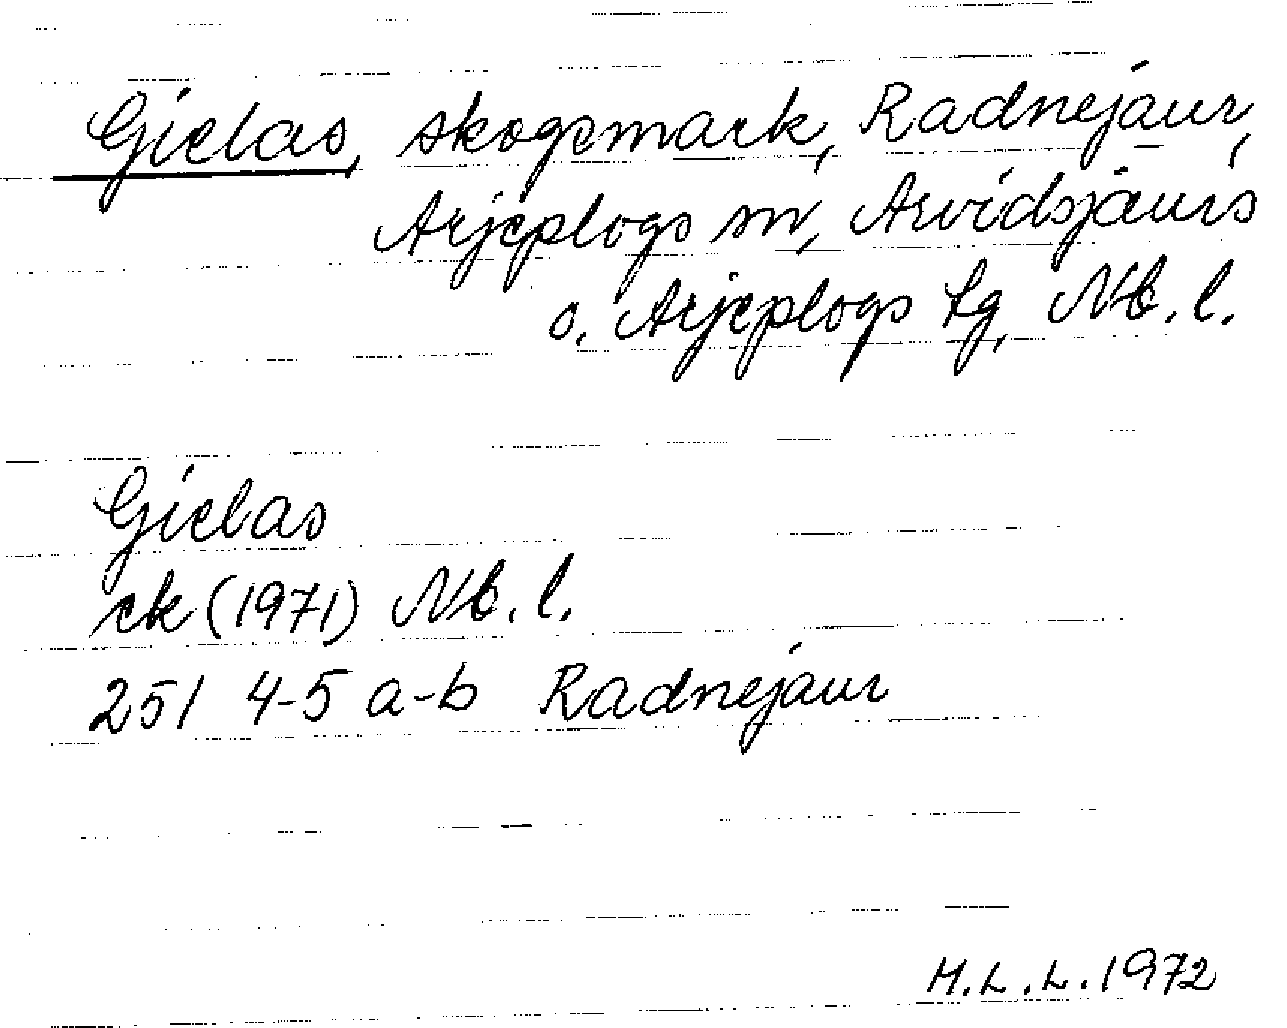 Gielas, skogsmark, Radnejaur,
Arjeplogs sn, Arvidsjaurs
o. Arjeplogs tg, Nb. l.
Gielas
ek (1971) Nb. l.
251 4-5 a-b Radnejaur
M.L.L. 1972